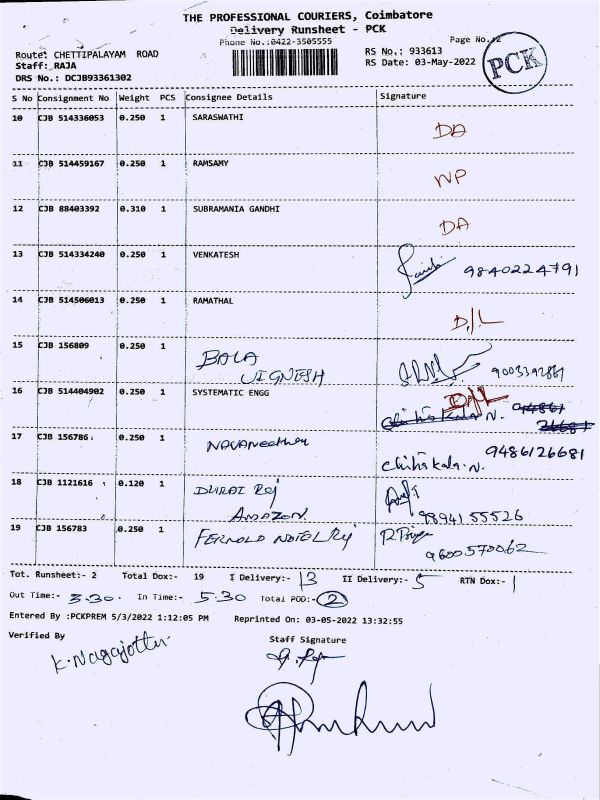 THE PROFESSIONAL COURIERS, Coimbatore
Delivery Runsheet - PCK
Phone No.:0422-3505555
Page No.:2
PCK
Route: CHETTIPALAYAM ROAD
RS No.: 933613
Staff: RAJA
RS Date: 03-May-2022
DRS No.: DCJB93361302
S No Consignment No Weight PCS Consignee Details Signature
10 CJB 514336053 0.250 1 SARASWATHI DA
11 CJB 514459167 0.250 1 RAMSAMY NP
12 CJB 88403392 0.310 1 SUBRAMANIA GANDHI DA
13 CJB 514334240 0.250 1 VENKATESH 9840224791
14 CJB 514506013 0.250 1 RAMATHAL D/L
15 CJB 156809 0.250 1 BALA VIGNESH
16 CJB 514404902 0.250 1 SYSTEMATIC ENGG D/L
17 CJB 156786 0.250 1 9486126681
Chitra kala. N.
18 CJB 1121616 0.120 1 DURAI Raj
AMAZON 9894155526
19 CJB 156783 0.250 1 9600570062
Tot. Runsheet:- 2 Total Dox:- 19 I Delivery:- 13 II Delivery:- 5 RTN Dox:- 1
Out Time:- 3.30. In Time:- 5.30 Total POD:- 2
Entered By :PCKPREM 5/3/2022 1:12:05 PM Reprinted On: 03-05-2022 13:32:55
Verified By Staff Signature